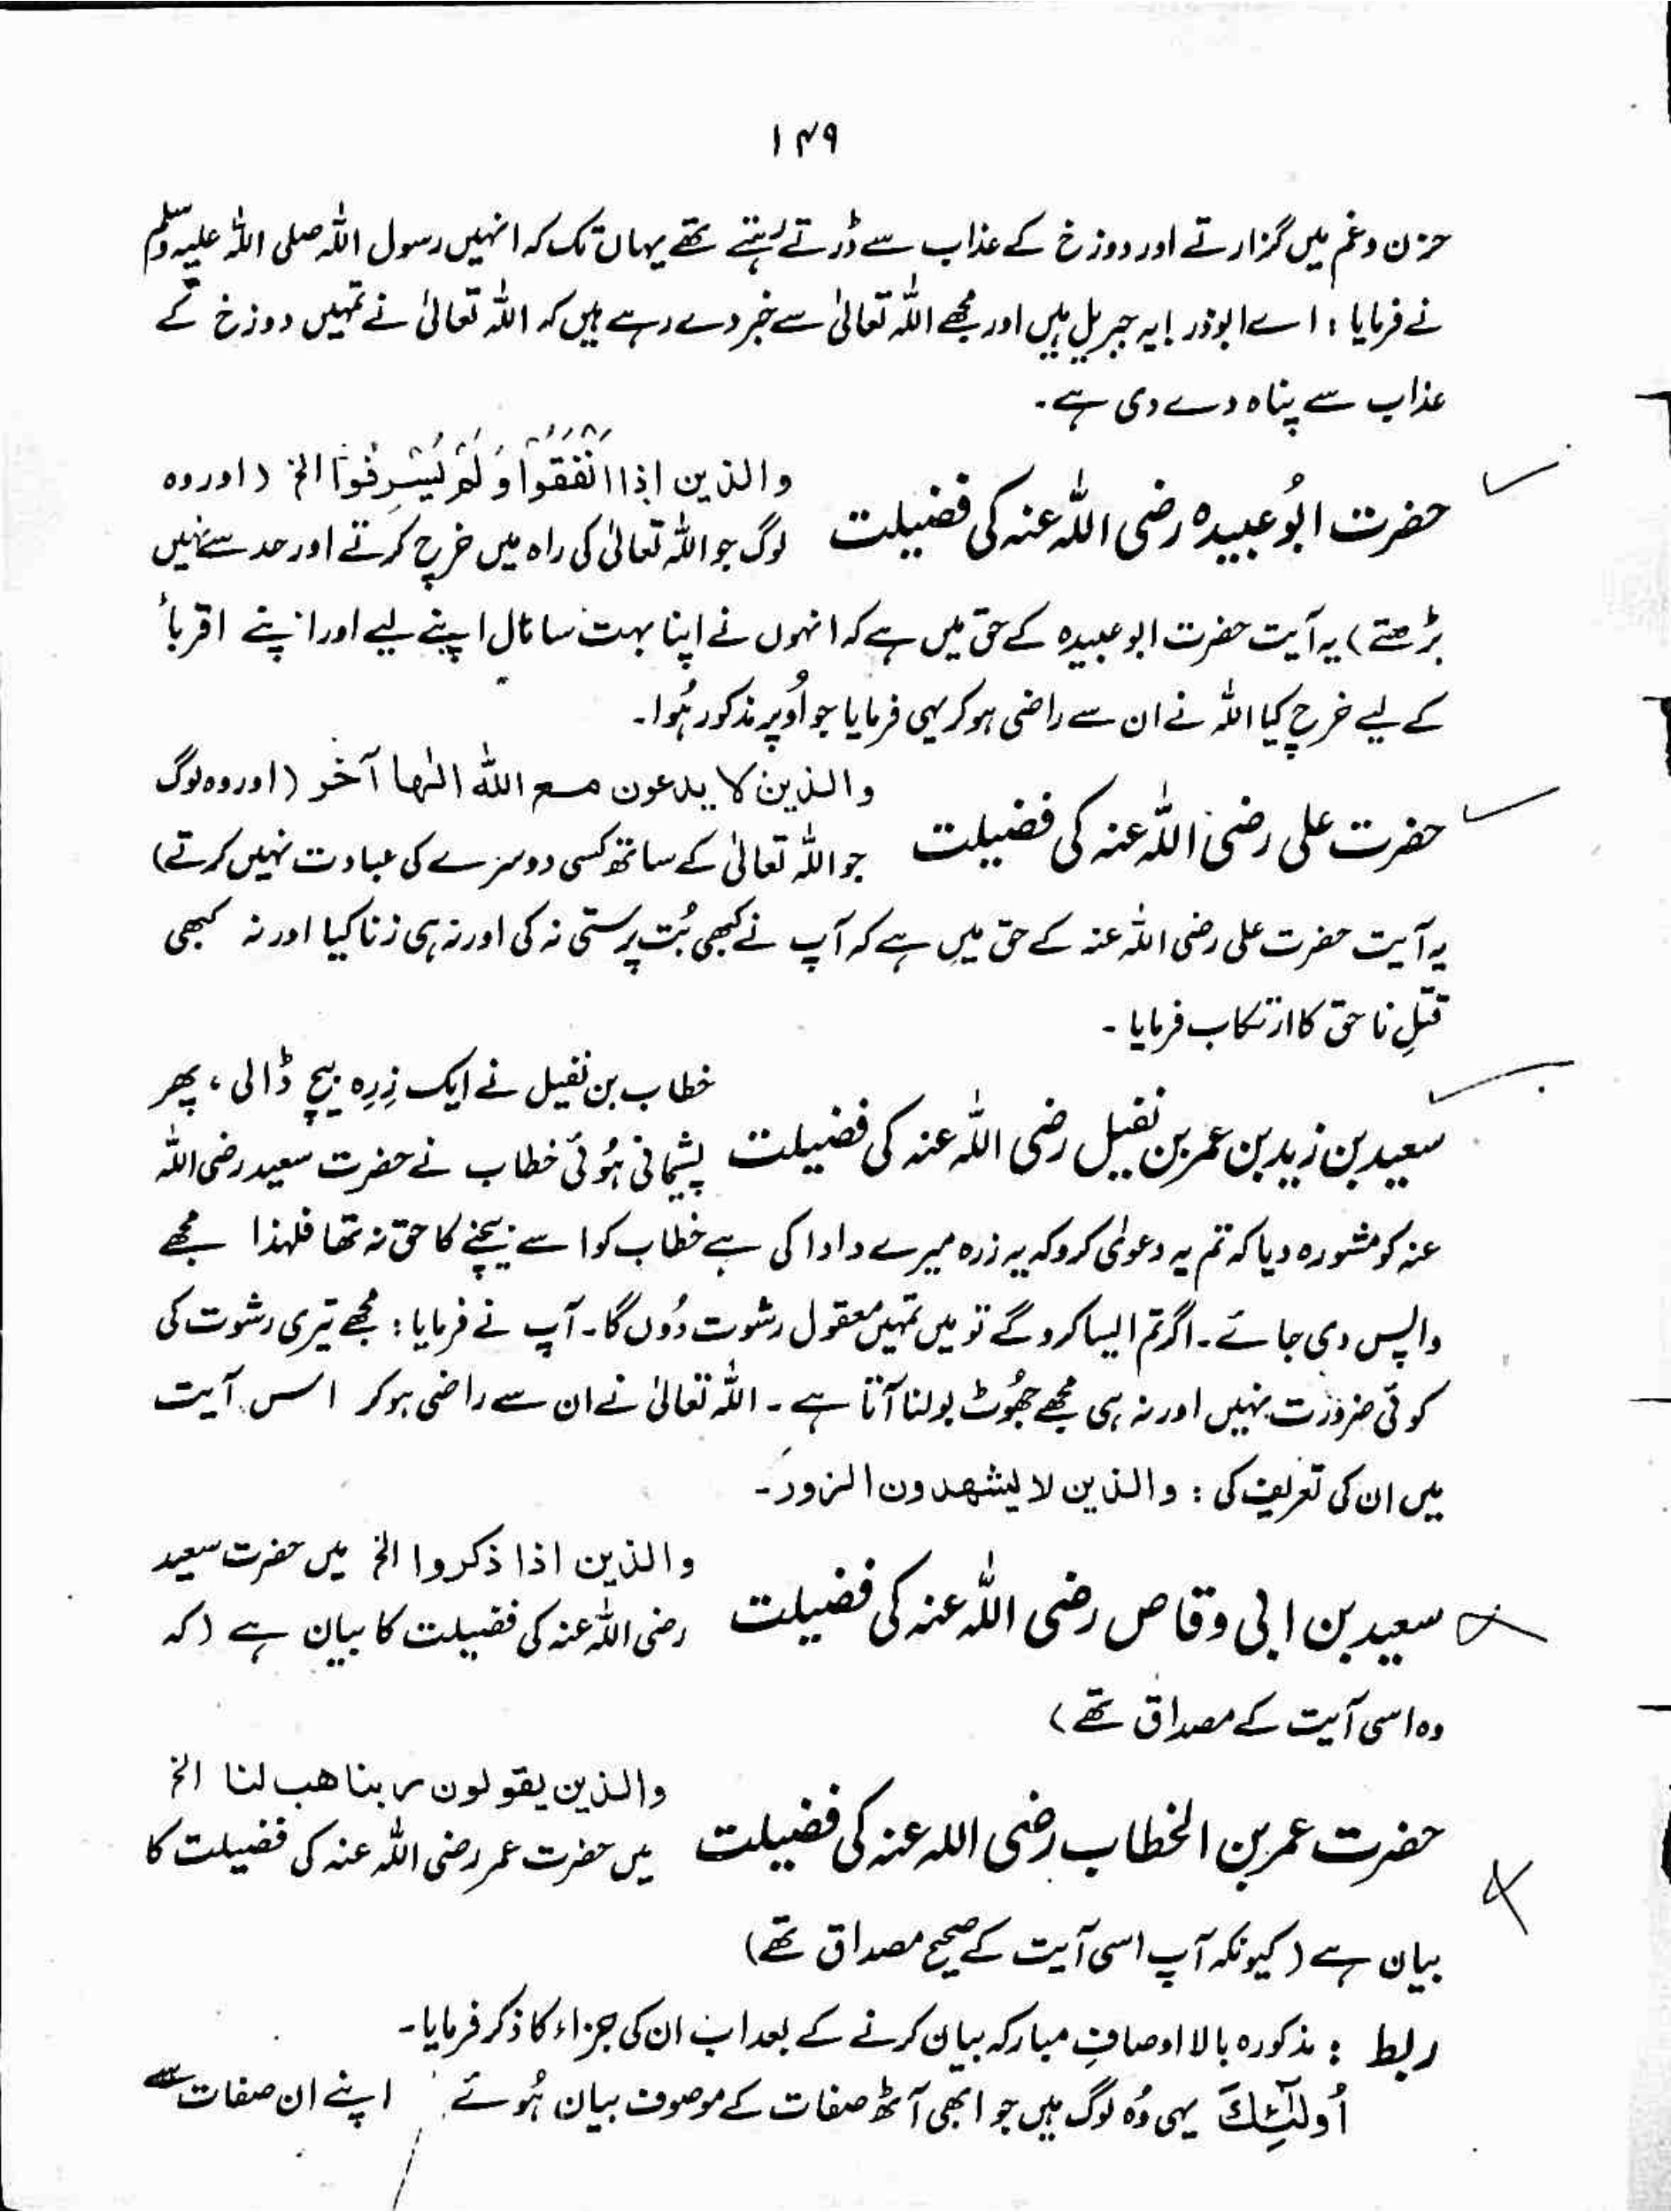 ۱۴۹
حزن و غم میں گزارتے اور دوزخ کے عذاب سے ڈرتے رہتے تھے یہاں تک کہ انہیں رسول اللہ صلی اللہ علیہ وسلم
نے فرمایا : اے ابوذر ! یہ جبریل ہیں اور مجھے اللہ تعالیٰ سے خبر دے رہے ہیں کہ اللہ تعالیٰ نے تمہیں دوزخ کے
عذاب سے پناہ دے دی ہے ۔
حضرت ابُو عبیدہ رضی اللہ عنہ کی فضیلت
والذین اذا انفقوا و لم یسرفوا الخ (اور وہ
لوگ جو اللہ تعالیٰ کی راہ میں خرچ کرتے اور حد سے نہیں
بڑھتے) یہ آیت حضرت ابو عبیدہ کے حق میں ہے کہ انہوں نے اپنا بہت سا مال اپنے لیے اور اپنے اقرباٗ
کے لیے خرچ کیا اللہ نے ان سے راضی ہو کر یہی فرمایا جو اُوپر مذکور ہُوا۔
حضرت علی رضی اللہ عنہ کی فضیلت
والذین لا یدعون مع اللہ الٰھا آخر (اور وہ لوگ
جو اللہ تعالیٰ کے ساتھ کسی دوسرے کی عبادت نہیں کرتے)
یہ آیت حضرت علی رضی اللہ عنہ کے حق میں ہے کہ آپ نے کبھی بُت پرستی نہ کی اور نہ ہی زنا کیا اور نہ کبھی
قتلِ ناحق کا ارتکاب فرمایا ۔
سعید بن زید بن عمر بن نفیل رضی اللہ عنہ کی فضیلت
خطاب بن نفیل نے ایک زِرہ بیچ ڈالی ، پھر
پشیمانی ہُوئی خطاب نے حضرت سعید رضی اللہ
عنہ کو مشورہ دیا کہ تم یہ دعوٰی کرو کہ یہ زرہ میرے دادا کی ہے خطاب کو اسے بیچنے کا حق نہ تھا فلہذا مجھے
واپس دی جائے ۔ اگر تم ایسا کرو گے تو میں تمہیں معقول رشوت دُوں گا ۔ آپ نے فرمایا : مجھے تیری رشوت کی
کوئی ضرورت نہیں اور نہ ہی مجھے جھُوٹ بولنا آتا ہے ۔ اللہ تعالیٰ نے ان سے راضی ہو کر اس آیت
میں ان کی تعریف کی : والذین لا یشھدون الزور ۔
سعید بن ابی وقاص رضی اللہ عنہ کی فضیلت
والذین اذا ذکروا الخ میں حضرت سعید
رضی اللہ عنہ کی فضیلت کا بیان ہے (کہ
وہ اسی آیت کے مصداق تھے)
حضرت عمر بن الخطاب رضی اللہ عنہ کی فضیلت
والذین یقولون ربنا ھب لنا الخ
میں حضرت عمر رضی اللہ عنہ کی فضیلت کا
بیان ہے (کیونکہ آپ اسی آیت کے صحیح مصداق تھے)
ربط : مذکورہ بالا اوصافِ مبارکہ بیان کرنے کے بعد اب ان کی جزاء کا ذکر فرمایا۔
اُولٰٓئِكَ یہی وُہ لوگ ہیں جو ابھی آٹھ صفات کے موصوف بیان ہُوئے اپنے ان صفات سے